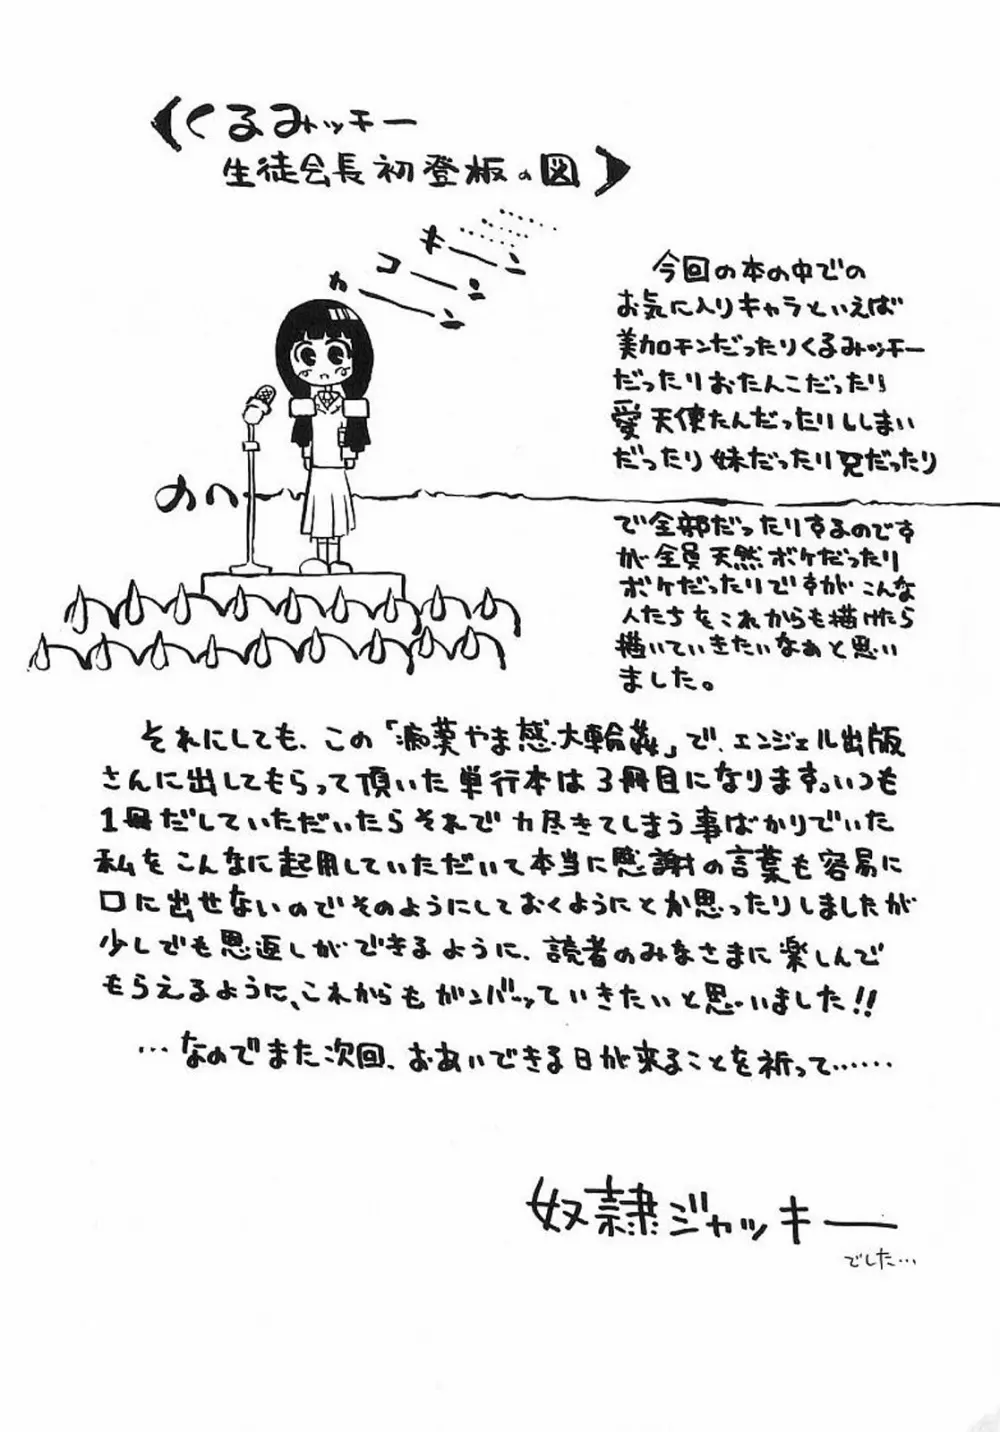 くるみッチー
生徒会長初登板の図
キーン
コーン
カーン
今回の本の中での
お気に入りキャラといえば
美加モンだったりくるみッチー
だったりおたんこだったり
愛天使たんだったりししまい
だったり妹だったり兄だったり
で全部だったりするのです
が全員天然ボケだったり
ボケだったりですがこんな
人たちをこれからも描けたら
描いていきたいなぁと思い
ました。
それにしても、この「痴薬やま感大輪姦」で、エンジェル出版
さんに出してもらって頂いた単行本は3冊目になります。いつも
1冊だしていただいたらそれで力尽きてしまう事ばかりでいた
私をこんなに起用していただいて本当に感謝の言葉も容易に
口に出せないのでそのようにしておくようにとか思ったりしましたが
少しでも恩返しができるように、読者のみなさまに楽しんで
もらえるように、これからもガンバッていきたいと思いました!!
…なのでまた次回、おあいできる日が来ることを祈って……
奴隷ジャッキー
でした…